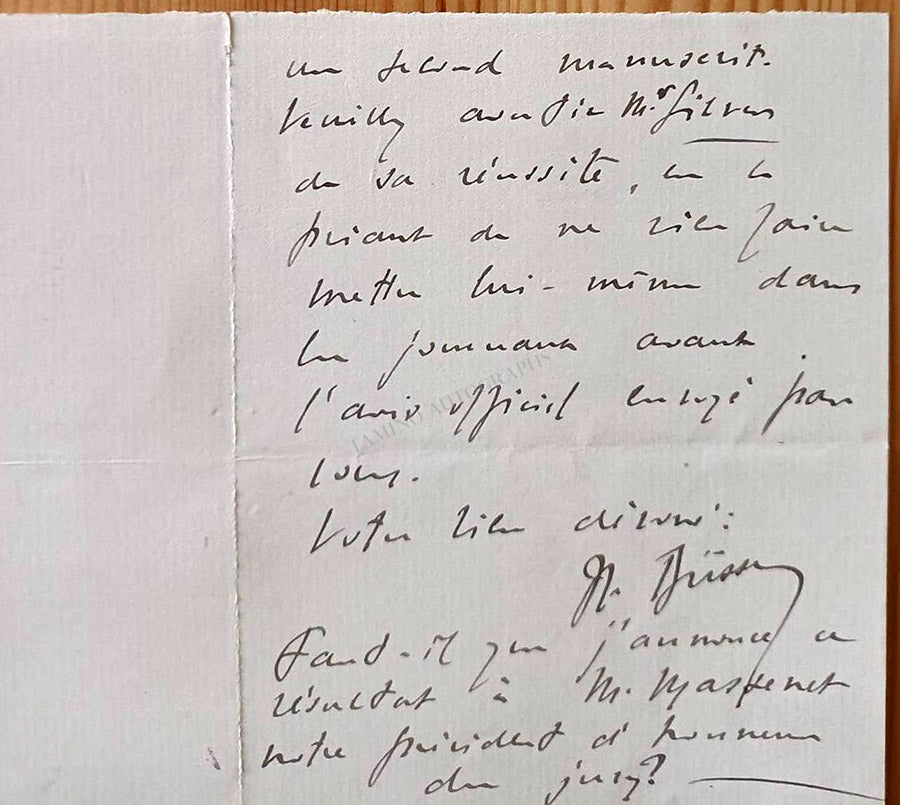 un second manuscrit.
Veuillez avertir Mr Silver
de sa réussite, en le
priant de ne rien faire
mettre lui-même dans
les journaux avant
l'avis officiel envoyé par
vous.
Votre bien dévoué:
H. Büsser
Faut-il que j'annonce ce
résultat à M. Massenet
notre président d'honneur
du jury?
TAMINO AUTOGRAPHS